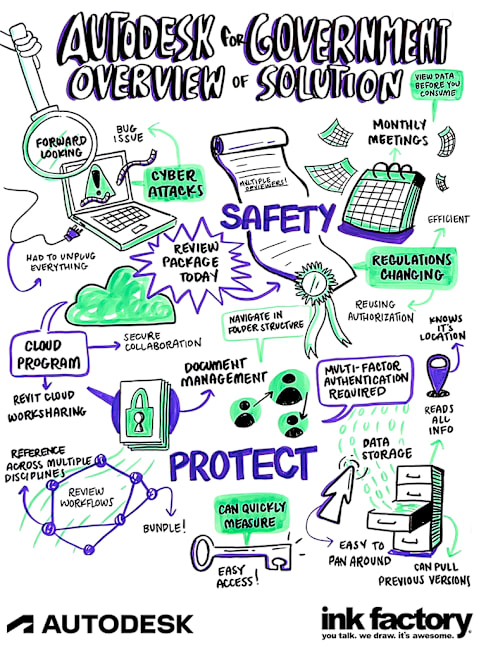 AUTODESK for GOVERNMENT
OVERVIEW OF SOLUTION
VIEW DATA
BEFORE YOU
CONSUME
FORWARD
LOOKING
BUG
ISSUE
CYBER
ATTACKS
HAD TO UNPLUG
EVERYTHING
MULTIPLE
REVIEWERS!
SAFETY
MONTHLY
MEETINGS
EFFICIENT
REGULATIONS
CHANGING
REUSING
AUTHORIZATION
REVIEW
PACKAGE
TODAY
CLOUD
PROGRAM
SECURE
COLLABORATION
REVIT CLOUD
WORKSHARING
NAVIGATE IN
FOLDER STRUCTURE
DOCUMENT
MANAGEMENT
MULTI-FACTOR
AUTHENTICATION
REQUIRED
KNOWS
IT'S
LOCATION
READS
ALL
INFO
DATA
STORAGE
PROTECT
REFERENCE
ACROSS MULTIPLE
DISCIPLINES
REVIEW
WORKFLOWS
BUNDLE!
CAN QUICKLY
MEASURE
EASY
ACCESS!
EASY TO
PAN AROUND
CAN PULL
PREVIOUS VERSIONS
AUTODESK
ink factory
you talk. we draw. it's awesome.